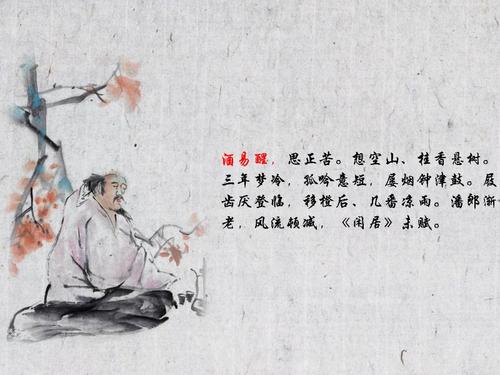 酒易醒，思正苦。想空山、桂香悬树。
三年梦冷，孤吟意短，屡烟钟津鼓。屐
齿厌登临，移橙后、几番凉雨。潘郎渐
老，风流顿减，《闲居》未赋。